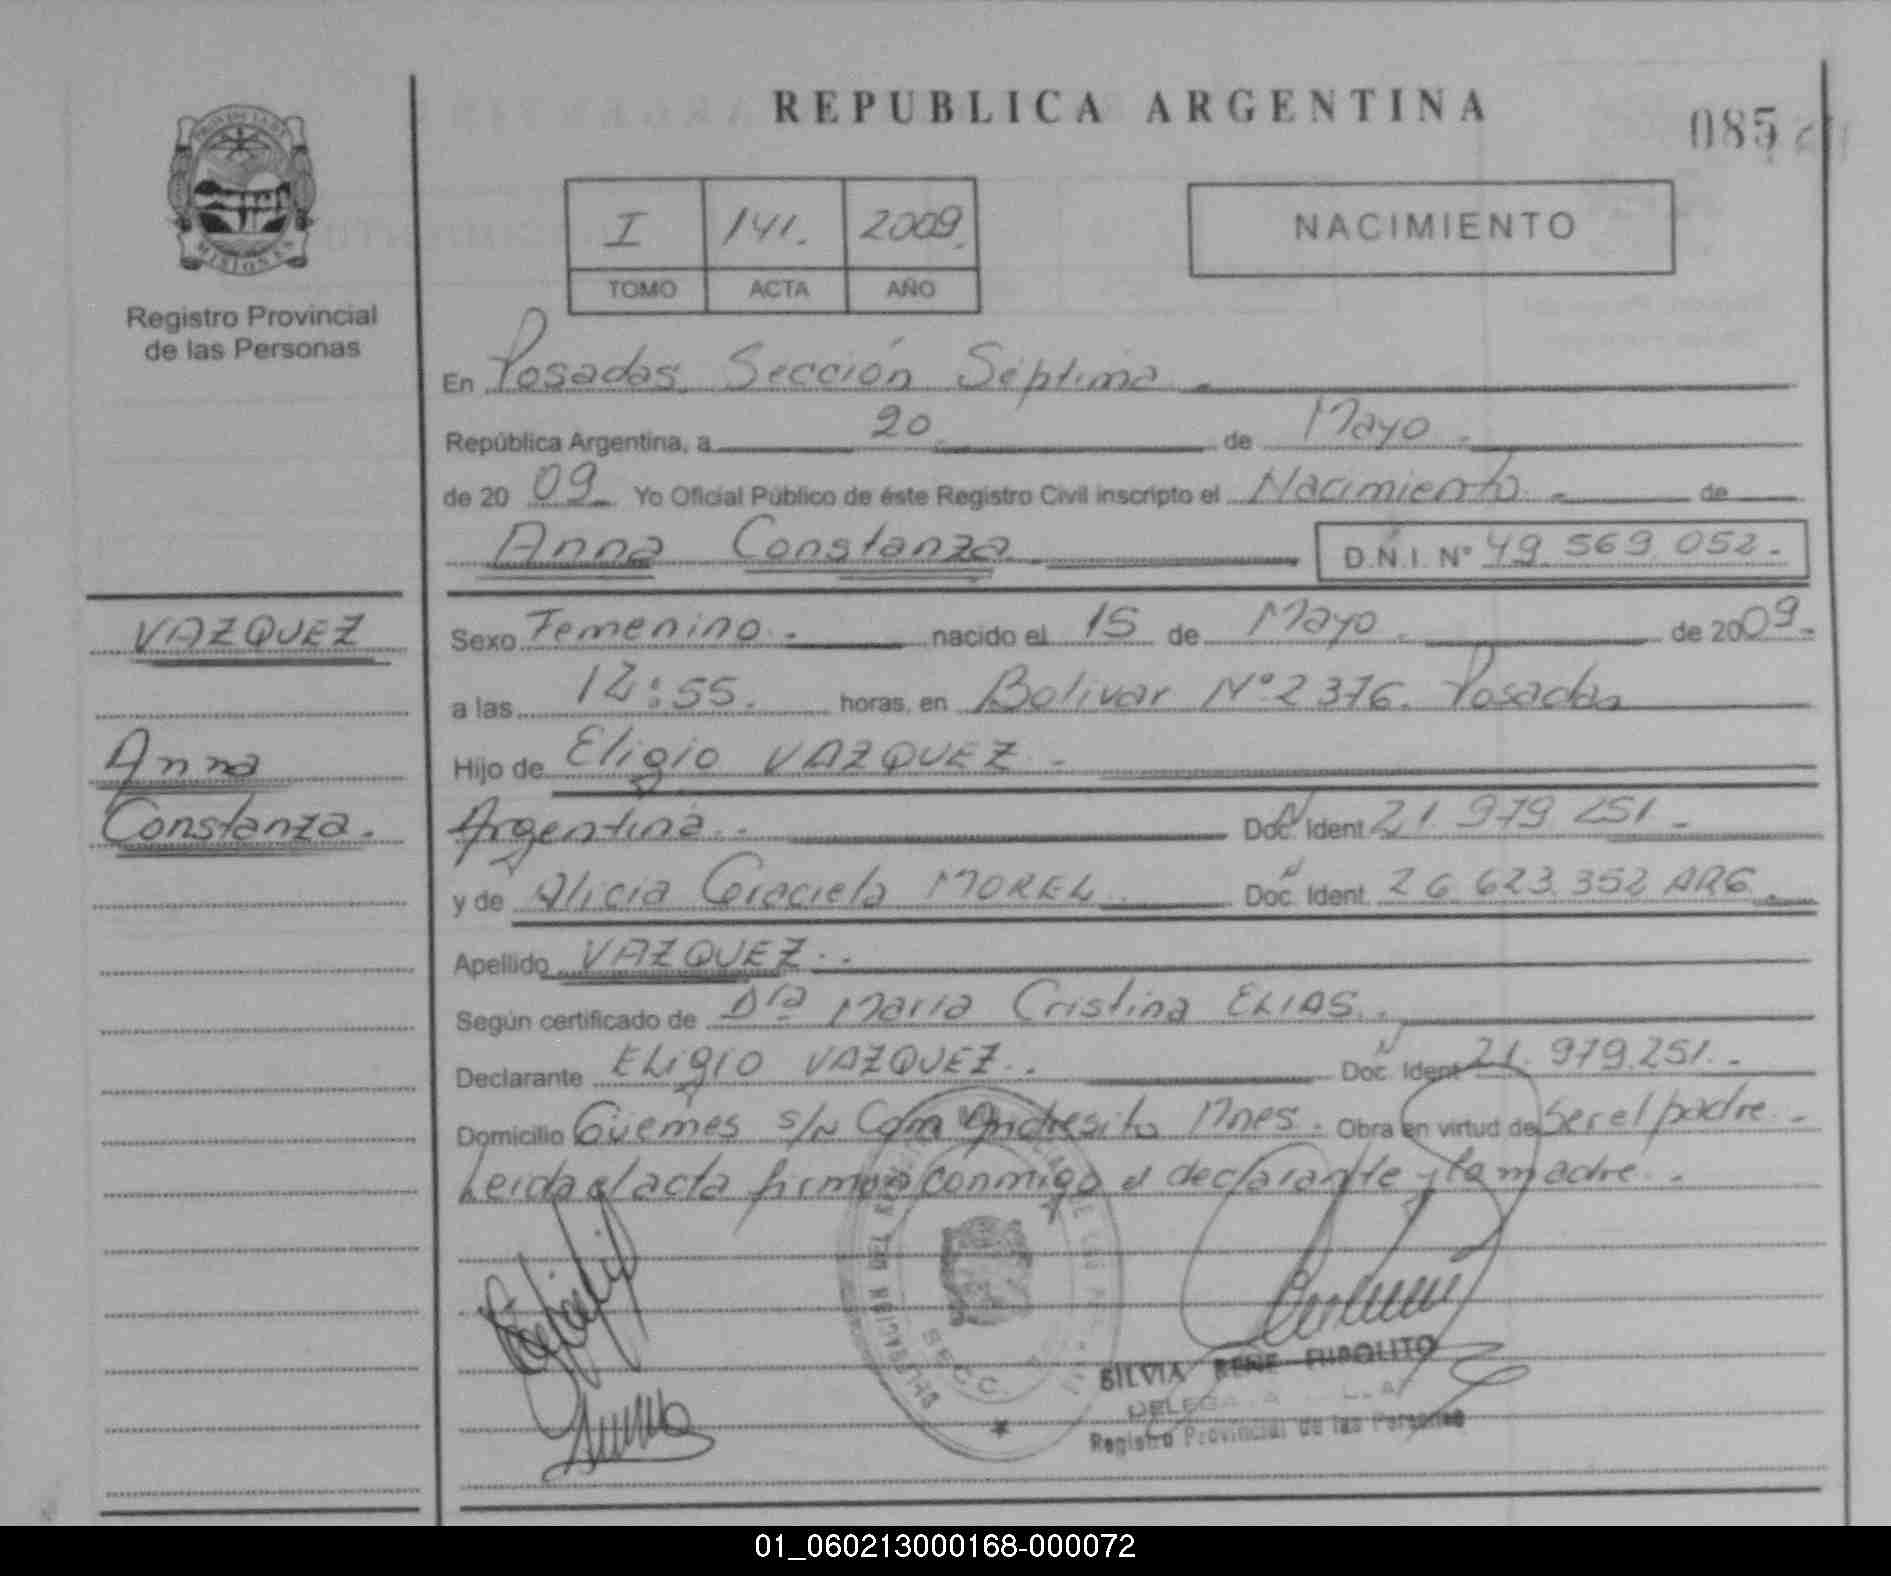 REPUBLICA ARGENTINA
085
PROVINCIA DE
MISIONES
Registro Provincial
de las Personas
I 141. 2009.
TOMO ACTA AÑO
NACIMIENTO
En Posadas, Sección Séptima
República Argentina, a 20 de Mayo
de 2009 Yo Oficial Público de éste Registro Civil inscripto el Nacimiento de
Anna Constanza D.N.I. Nº 49 569 052.
VAZQUEZ
Anna
Constanza.
Sexo Femenino. nacido el 15 de Mayo de 2009.
a las 12:55. horas, en Bolivar Nº 2376. Posadas
Hijo de Eligio VAZQUEZ
Argentina.. Doc. Ident 21 979 251.
y de Alicia Graciela MOREL Doc. Ident. 26 623 352 ARG.
Apellido VAZQUEZ..
Según certificado de Dra Maria Cristina ELIAS.
Declarante ELigIO VAZQUEZ.. Doc. Ident 21. 979.251.
Domicilio Güemes s/N Com Andresito Mnes. Obra en virtud de Ser el padre.
Leida el acta firman conmigo el declarante y la madre.
SECC.
SILVIA RENE HIPOLITO
Registro Provincial de las Personas
01_060213000168-000072